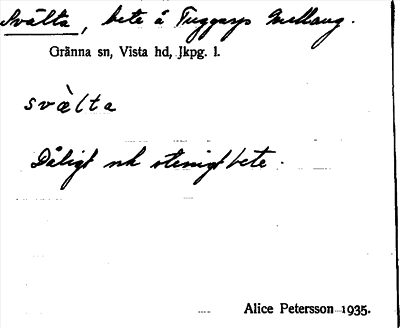 Svälta, bete å Tuggarps Mellang.
Gränna sn, Vista hd, Jkpg. l.
svælta
Dåligt och stenigt bete.
Alice Petersson 1935.